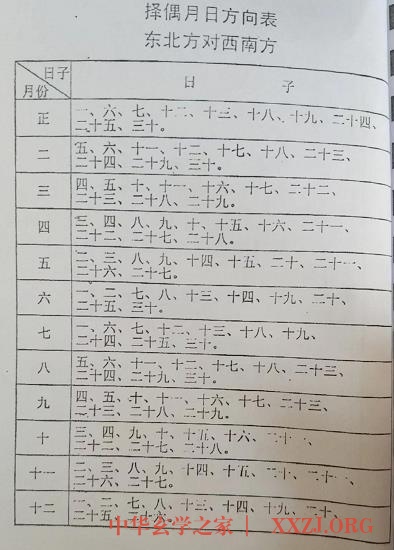 择偶月日方向表
东北方对西南方
日子
月份
日 子
正
一、六、七、十二、十三、十八、十九、二十四、
二十五、三十。
二
五、六、十一、十二、十七、十八、二十三、
二十四、二十九、三十。
三
四、五、十、十一、十六、十七、二十二、
二十三、二十八、二十九。
四
三、四、八、九、十、十五、十六、二十一、
二十二、二十七、二十八。
五
二、三、八、九、十四、十五、二十、二十一、
二十六、二十七。
六
一、二、七、八、十三、十四、十九、二十、
二十五、三十。
七
一、六、七、十二、十三、十八、十九、
二十四、二十五、三十。
八
五、六、十一、十二、十七、十八、二十三、
二十四、二十九、三十。
九
四、五、十、十一、十六、十七、二十三、
二十三、二十八、二十九。
十
三、四、九、十、十五、十六、二十一、
二十二、二十七、二十八。
十一
二、三、八、九、十四、十五、二十、二十一、
二十六、二十七。
十二
一、二、七、八、十三、十四、十九、二十、
二十五、二十六。
中华玄学之家 | XXZJ.ORG